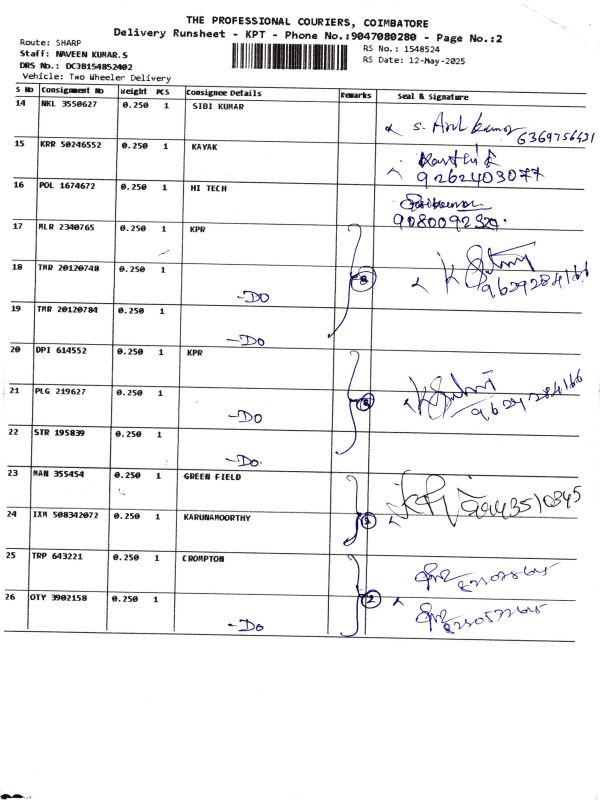 THE PROFESSIONAL COURIERS, COIMBATORE
Delivery Runsheet - KPT - Phone No.:9047080280 - Page No.:2
Route: SHARP
Staff: NAVEEN KUMAR.S
DRS No.: DCJB154852402
Vehicle: Two Wheeler Delivery
RS No.: 1548524
RS Date: 12-May-2025
S No Consignment No Weight PCS Consignee Details Remarks Seal & Signature
14 NKL 3550627 0.250 1 SIBI KUMAR
6369756431
15 KRR 50246552 0.250 1 KAYAK
9262403077
16 POL 1674672 0.250 1 HI TECH
17 MLR 2340765 0.250 1 KPR
18 TMR 20120748 0.250 1 -DO
9629284166
19 TMR 20120784 0.250 1 -DO
20 DPI 614552 0.250 1 KPR
21 PLG 219627 0.250 1 -DO
9629284166
22 STR 195839 0.250 1 -DO
23 MAN 355454 0.250 1 GREEN FIELD
24 IXM 508342072 0.250 1 KARUNAMOORTHY
25 TRP 643221 0.250 1 CROMPTON
26 OTY 3902158 0.250 1 -DO
2